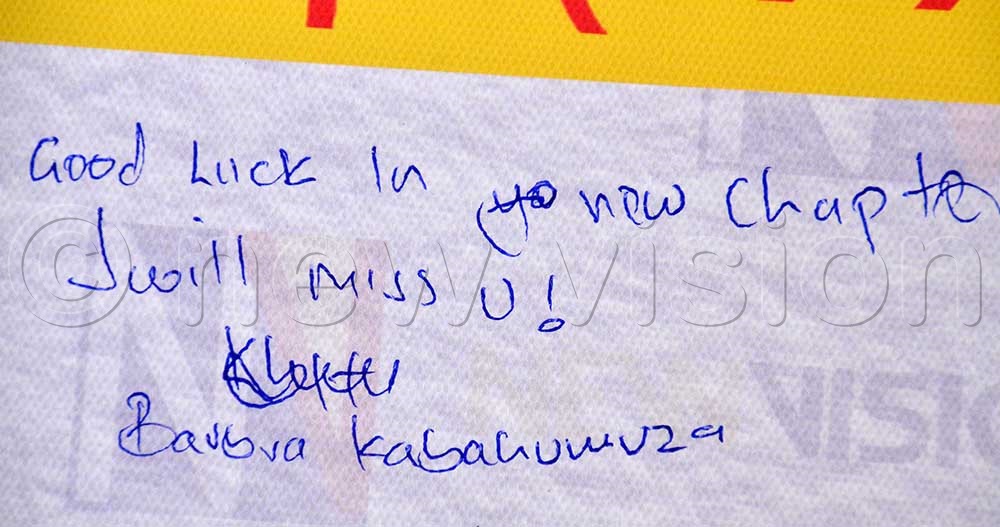 Good Luck In yo new Chapte
I will miss U!
Barbra Kabahumuza
© new vision
VISIO